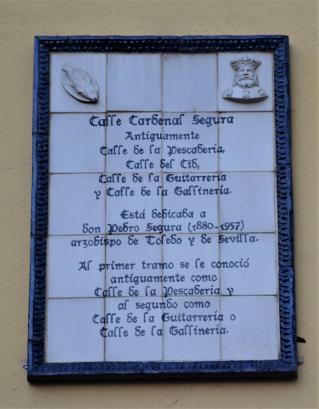 Calle Cardenal Segura
Antiguamente
Calle de la Pescadería,
Calle del Cid,
Calle de la Guitarrería
y Calle de la Gallinería.
Está dedicada a
don Pedro Segura (1880-1957)
arzobispo de Toledo y de Sevilla.
Al primer tramo se le conoció
antiguamente como
Calle de la Pescadería y
al segundo como
Calle de la Guitarrería o
Calle de la Gallinería.